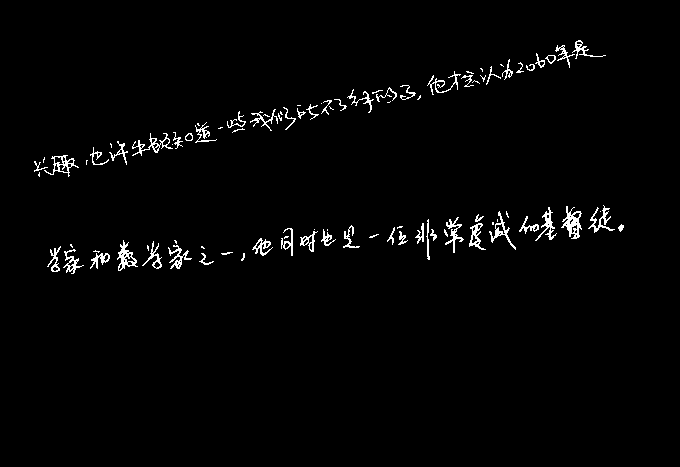 兴趣，也许牛顿知道一些我们所不了解的了，他才会认为2060年是
学家和数学家之一，他同时也是一位非常虔诚的基督徒。